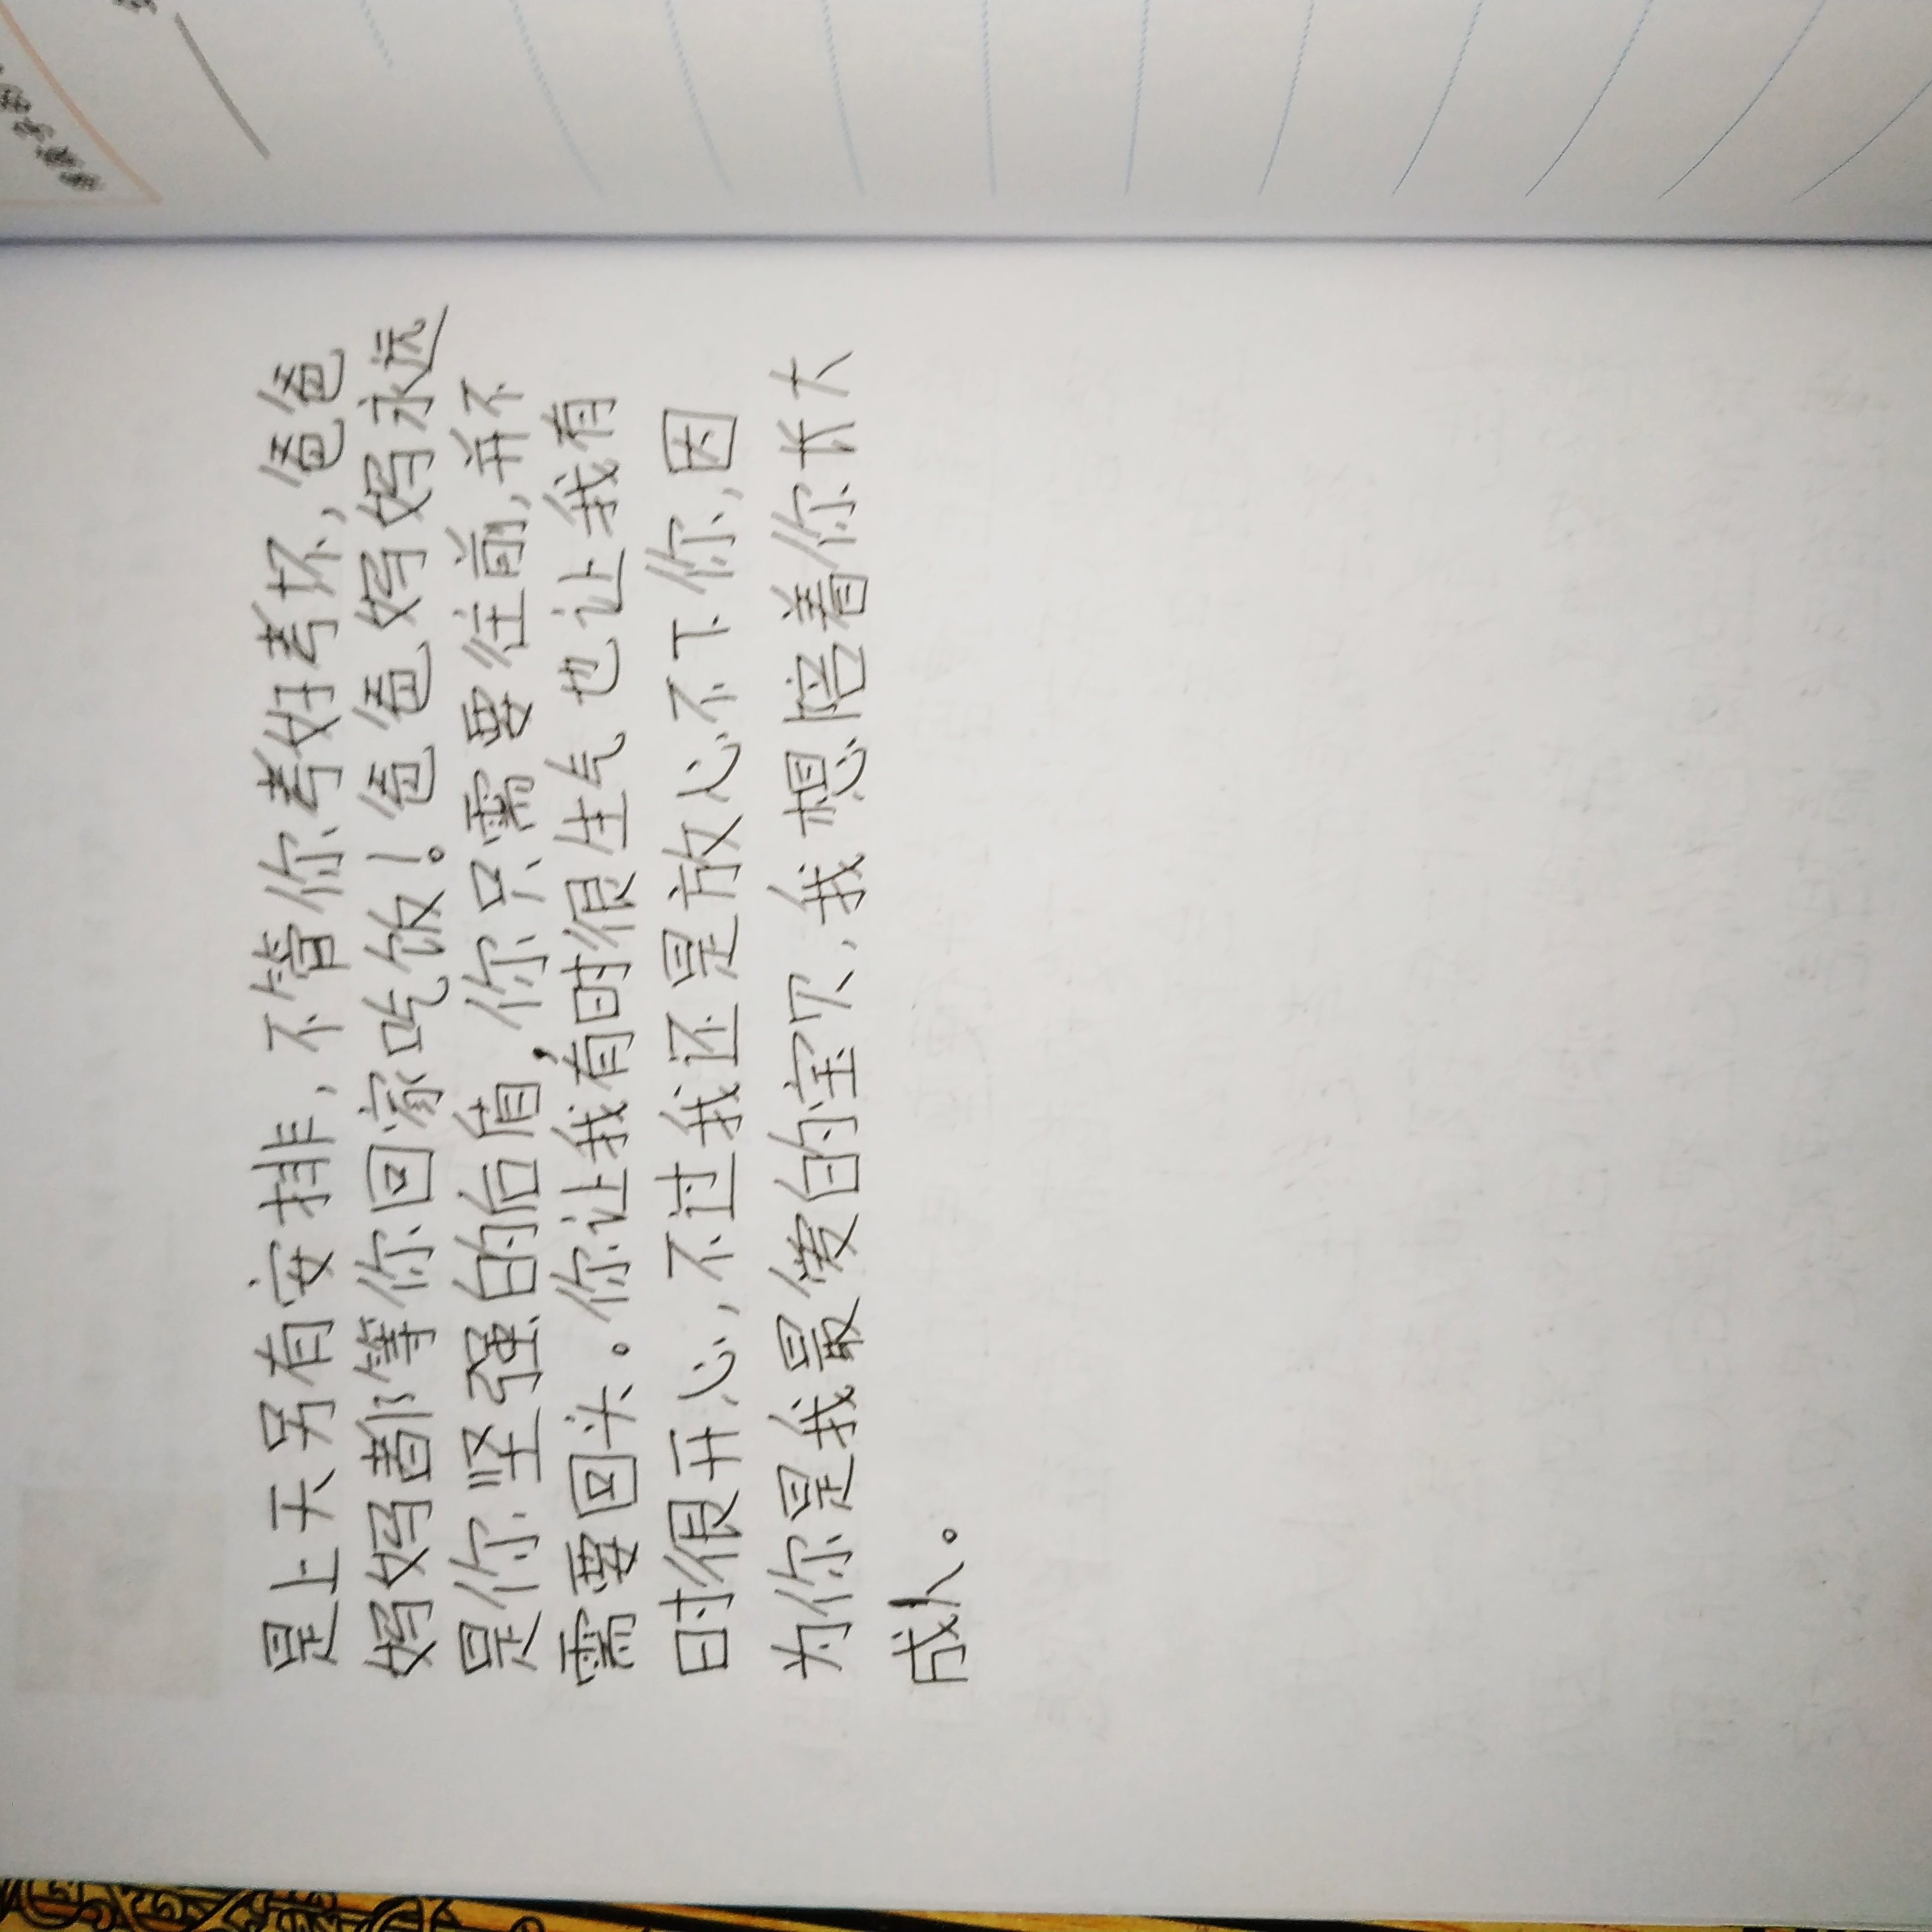 是上天另有安排，不管你考好考坏，爸爸
妈妈都等你回家吃饭！。爸爸妈妈永远
是你坚强的后盾，你只需要往前，并不
需要回头。你让我有时很生气也让我有
时很开心，不过我还是放心不下你，因
为你是我最後的宝贝，我想陪着你长大
成人。